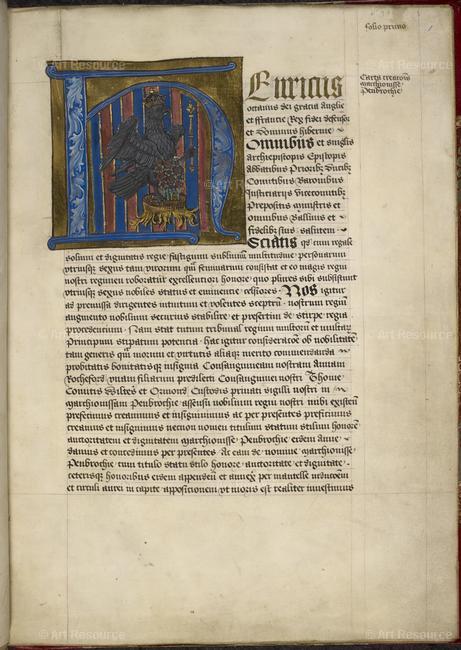 folio primo
Carta creacõis
marchionisse
Penbrochie
Enricus
octauus dei gracia anglie
et ffrancie Rex fidei defensor
et Dominus hibernie
Omnibus et singlis
archiepiscopis Episcopis
abbatibus Prioribȝ Ducibȝ
Comitibus Baronibus
Justiciarijs vicecomitibȝ
Prepositis ministris et
omnibus Balliuis et
fidelibȝ suis salutem
Sciatis qȝ cum regale
solium et dignitatis regie fastigium sublimiũ multitudine personarum
vtriusqȝ sexus tam virorum qȝ feminarum consistat et eo magis regiũ
nostri regimen roboratur excellentiori honore quo plures sibi subsistunt
vtriusqȝ sexus nobiles status et eminencie celsiores Nos igitur
ad premissa dirigentes intuitum et volentes sceptrũ nostrum regiũ
augmento nobilium securius stabilire et presertim de stirpe regia
procedencium Nam stat tutum tribunal regium
Principum stipatum potencia hac igitur consideracõe ob nobilitatẽ
tam generis qȝ morum et virtutis aliaqȝ merito commendanda
probitatis bonitatisqȝ insignia Consanguineam nostram Annam
Rocheford vnam filiarum predilecti Consanguinei nostri Thome
Comitis Wiltes et Ormond Custodis priuati sigilli nostri in
marchionissam Penbrochie assensu nobilium regni nostri nobis existenũ
preficimus creamus et insignimus ac per presentes preficimus
creamus et insignimus necnon nomen titulum statum stilum honorẽ
auctoritatem et dignitatem marchionisse Penbrochie eisem Anne
damus et concedimus per presentes Ac eam de nomine marchionisse
Penbrochie cum titulo statu stilo honore auctoritate et dignitate
ceterisqȝ honoribus eisem appenden̄ et annex̄ per mantelle inducõem
et circuli aurei in capite apposicionem vt moris est realiter inuestimus
© Art Resource
© Art Resource
© Art Resource
© Art Resource
© Art Resource